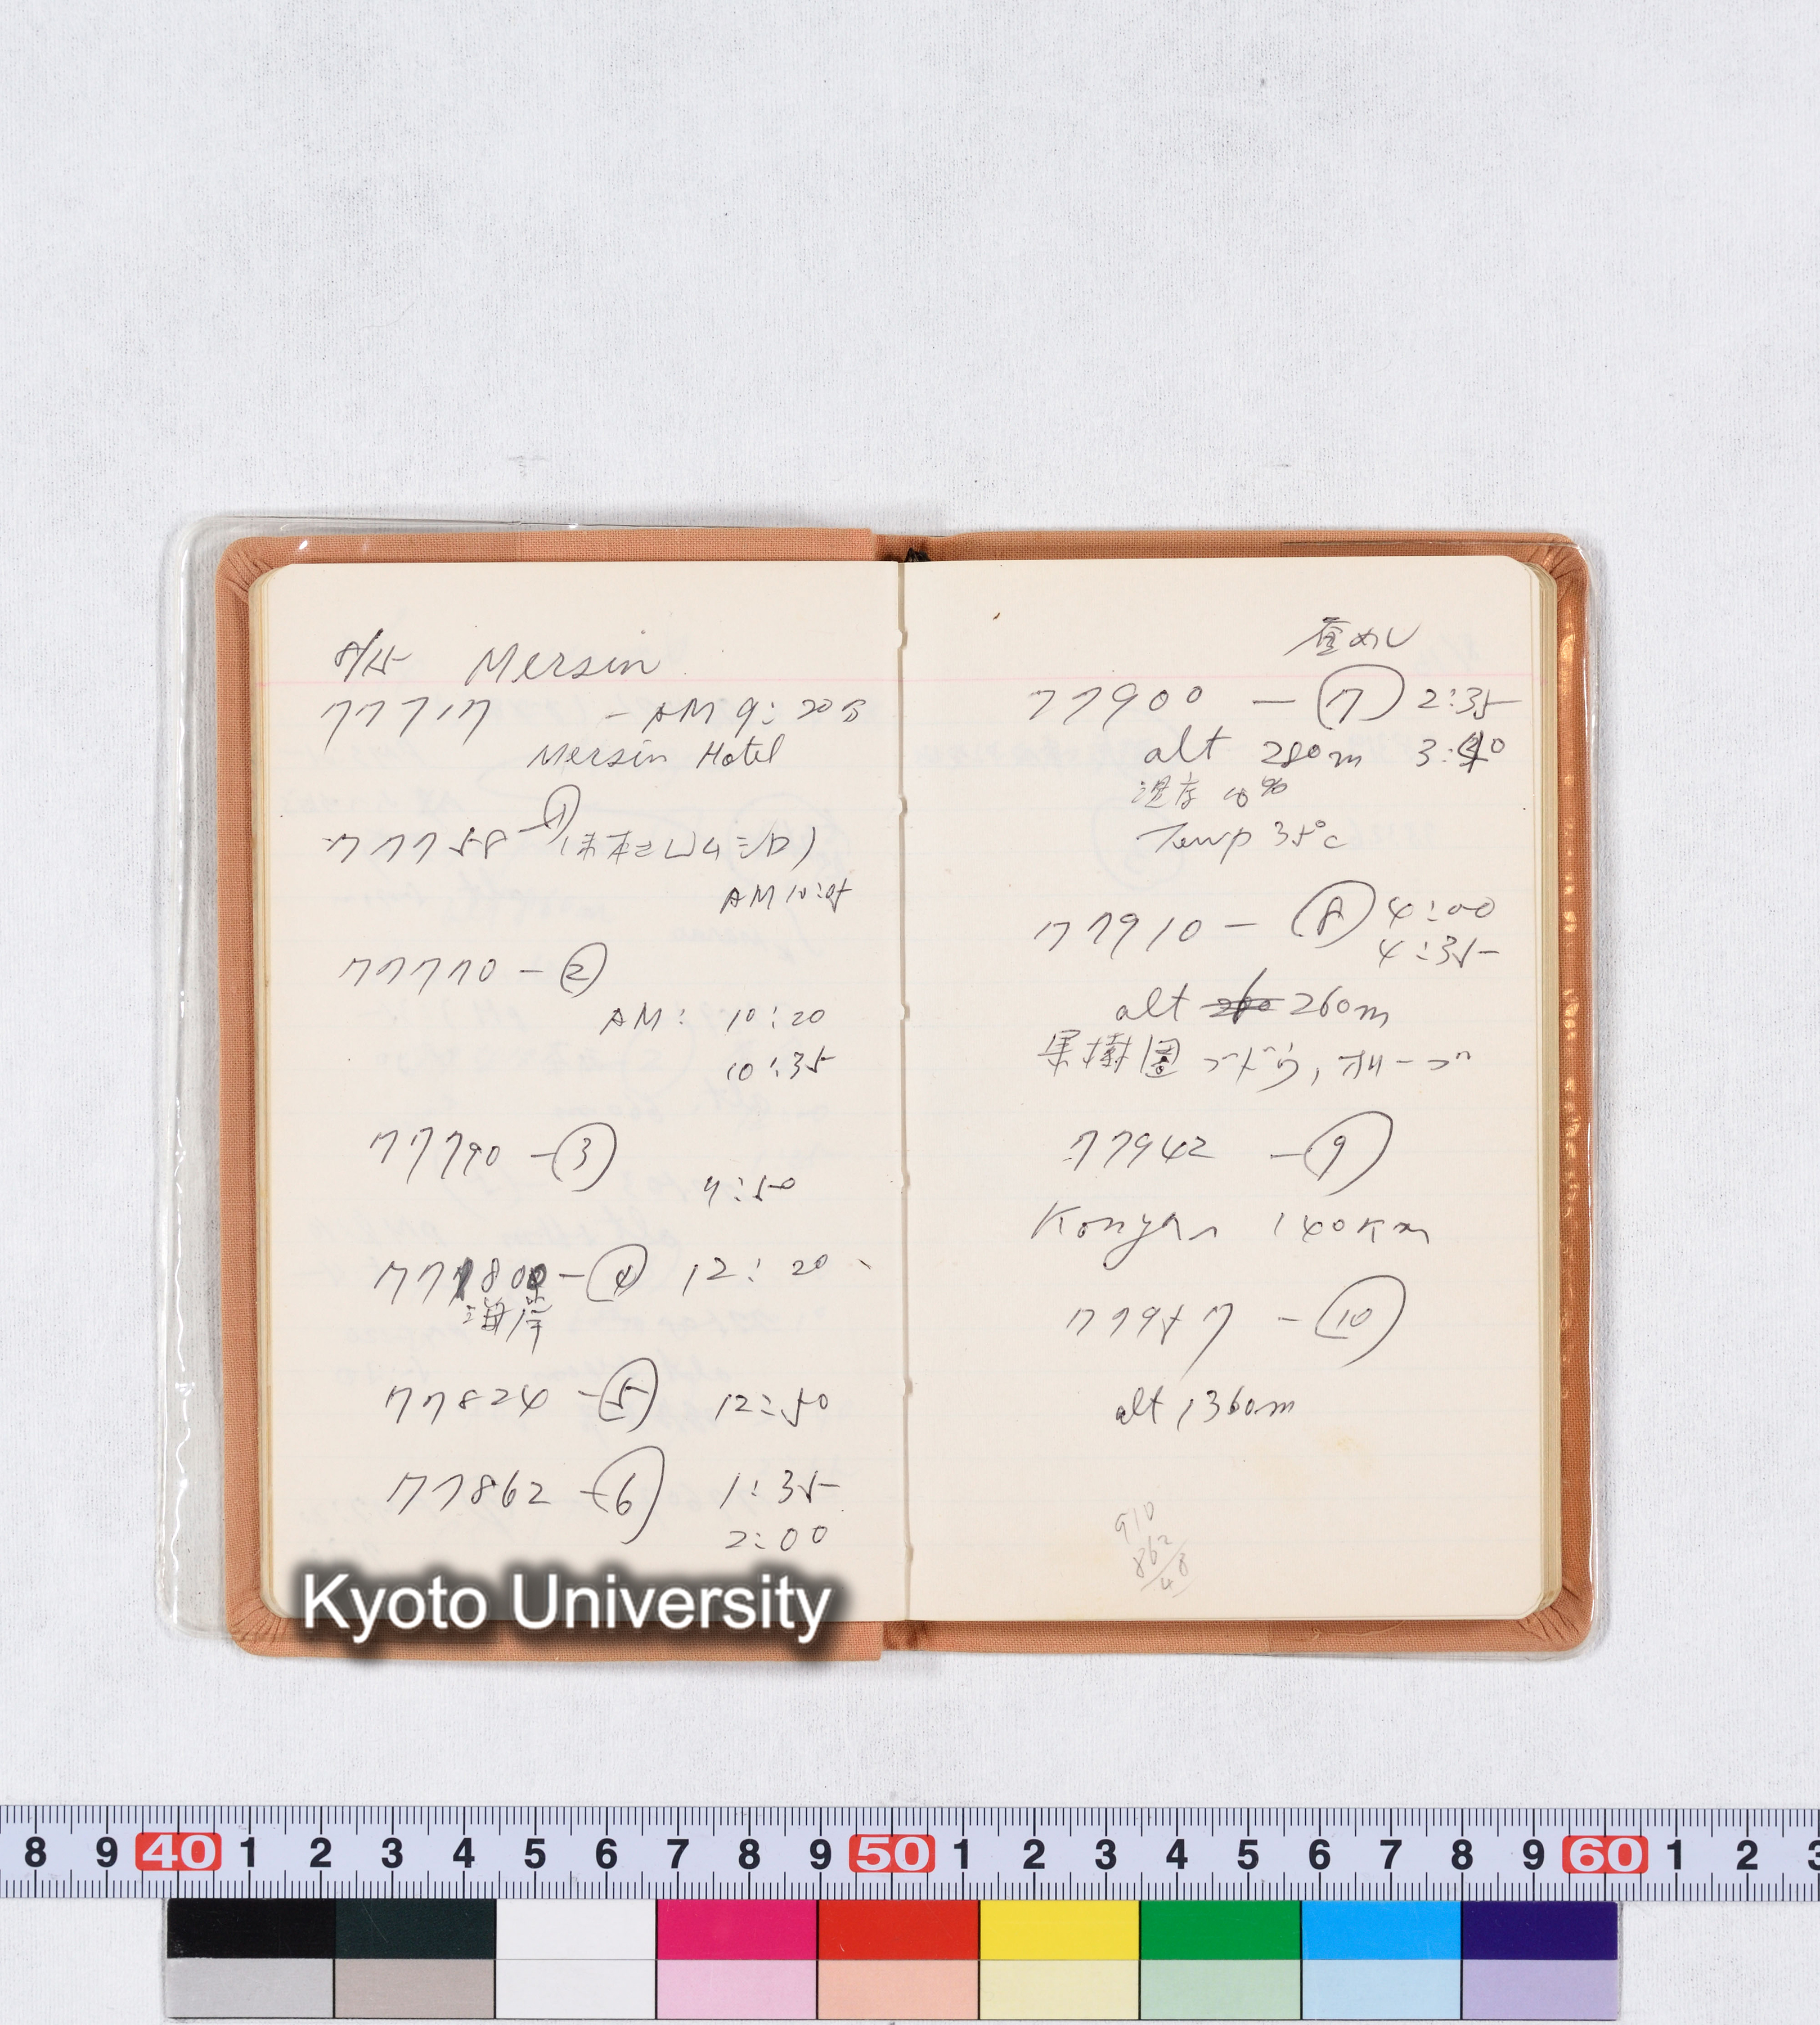 8/15 Mersin
77717 - AM 9:20分
Mersin Hotel
77758 - ①
AM 10:05
77770 - ②
AM: 10:20
10:35
77790 - ③
:50
77800 - ④ 12:20
海岸
77824 - ⑤ 12:50
77862 - ⑥ 1:35
2:00
昼めし
77900 - ⑦ 2:35
alt 280m 3:40
湿度 10%
Temp 35°c
77910 - ⑧ 4:00
4:35
alt 260m
果樹園 ブドウ, オリーブ
77942 - ⑨
Konya 140Km
77957 - ⑩
alt 1360m
910
862
48
Kyoto University
8 9 40 1 2 3 4 5 6 7 8 9 50 1 2 3 4 5 6 7 8 9 60 1 2 3